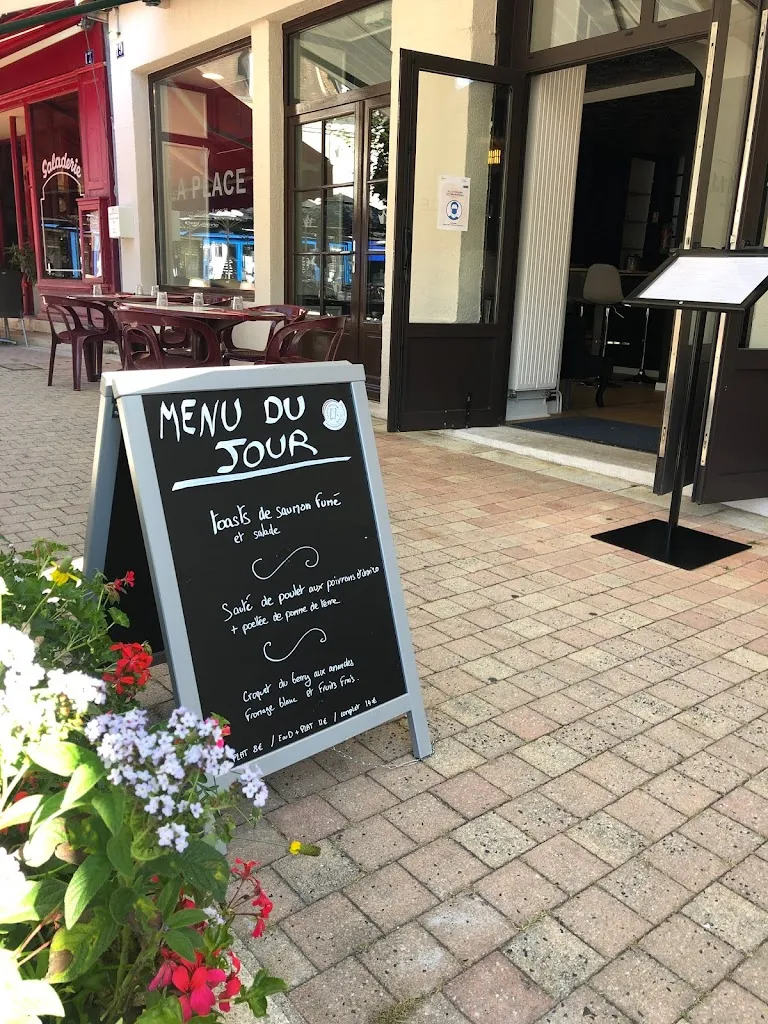 Saladerie
LA PLACE
MENU DU
JOUR
Toasts de saumon fumé
et salade
Sauté de poulet aux poivrons
+ poêlée de pomme de terre
Croquet du berry aux amandes
fromage blanc et fruits frais.
PLAT 8€ / E ou D + PLAT 12€ / complet 14€